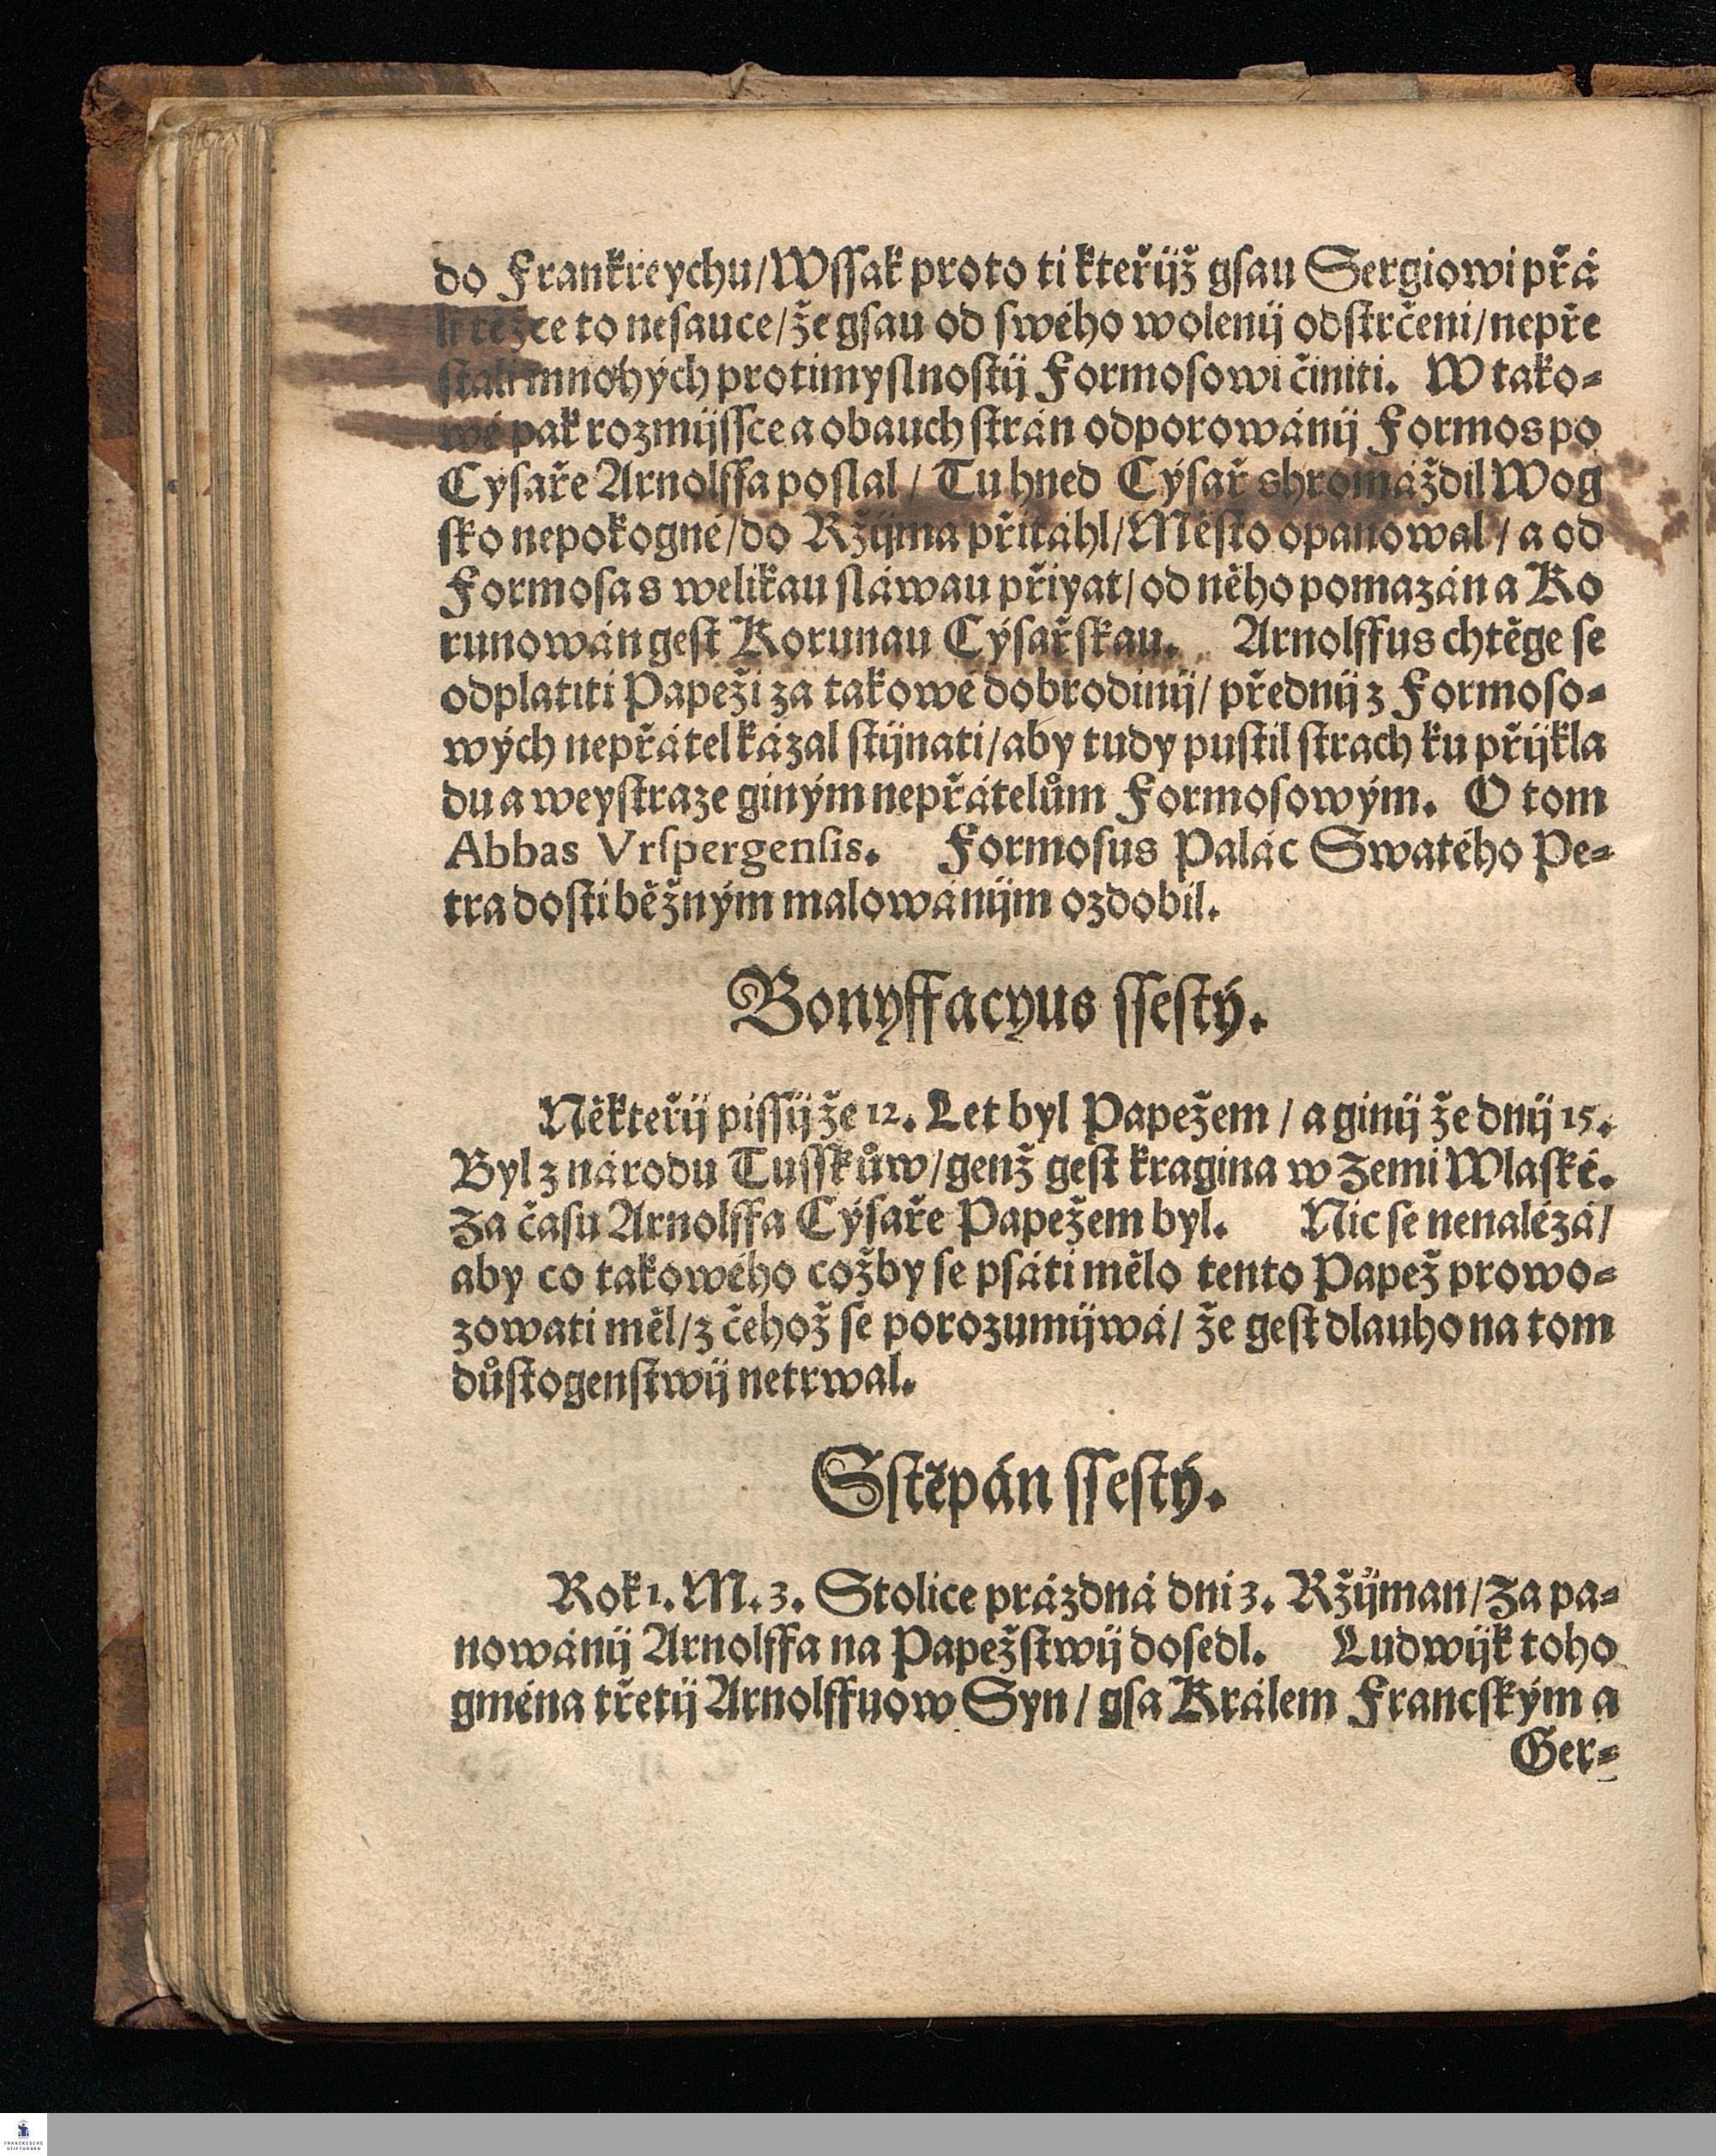 do Frankreychu/Wſſak proto ti kteřijž gſau Sergiowi přá
li těžce to neſauce/že gſau od ſwého wolenij odſtrčeni/nepře
ſtali mnohých protimyſlnoſtij Formoſowi činiti. W tako-
wé pak rozmijſſce a obauch ſtrán odporowánij Formos po
Cýſaře Arnolffa poſlal / Tu hned Cýſař shromáždil Wog
ſko nepokogné/do Ržijma přitáhl/Měſto opanowal / a od
Formoſa s welikau ſláwau přiyat/od něho pomazán a Ko
runowán geſt Korunau Cýſařſkau. Arnolffus chtěge ſe
odplatiti Papeži za takowé dobrodinij/ přednij z Formoſo-
wých nepřátel kázal ſtijnati/aby tudy puſtil ſtrach ku přijkla
du a weyſtraze giným nepřátelům Formoſowým. O tom
Abbas Vrſpergenſis. Formoſus Palác Swatého Pe-
tra doſti běžným malowánijm ozdobil.
Bonyffacyus ſſeſtý.
Někteřij piſſij že 12. Let byl Papežem / a ginij že dnij 15.
Byl z národu Tuſſkůw/genž geſt kragina w Zemi Wlaſké.
Za čaſu Arnolffa Cýſaře Papežem byl. Nic ſe nenalézá/
aby co takowého cožby ſe pſáti mělo tento Papež prowo-
zowati měl/z čehož ſe porozumijwá/ že geſt dlauho na tom
důſtogenſtwij netrwal.
Sſtěpán ſſeſtý.
Rok 1. M. 3. Stolice prázdná dni 3. Ržijman/Za pa-
nowánij Arnolffa na Papežſtwij doſedl. Ludwijk toho
gména třetij Arnolffuow Syn / gſa Králem Francſkým a
Ger-
FRANCKESCHE
STIFTUNGEN